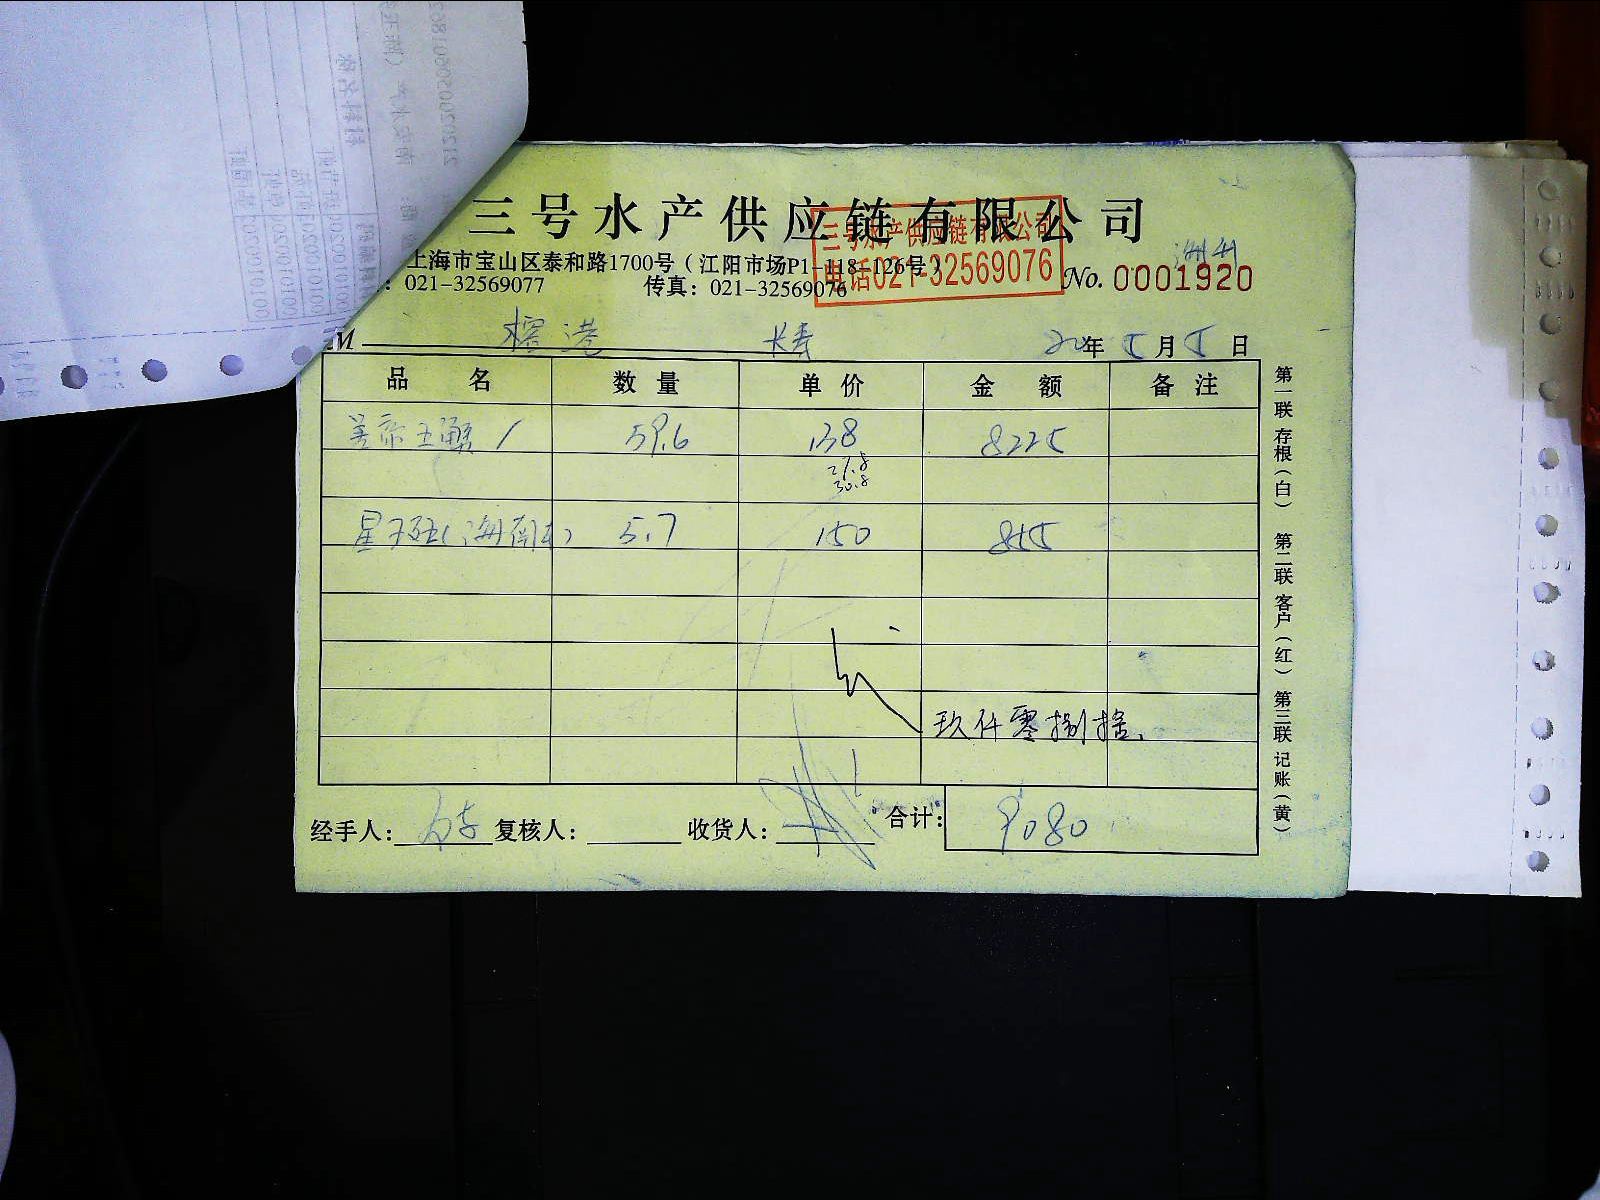 三号水产供应链有限公司
三号水产供应链有限公司
电话021-32569076
上海市宝山区泰和路1700号（江阳市场P1-118-126号）
021-32569077 传真：021-32569076
No. 0001920
M 榕港 长寿 20年5月5日
品名 数量 单价 金额 备注
59.6 138 8225
27.8
30.8
(海南) 5.7 150 855
玖仟零捌拾
经手人: 复核人: 收货人: 合计: 9080
第一联 存根（白） 第二联 客户（红） 第三联 记账（黄）